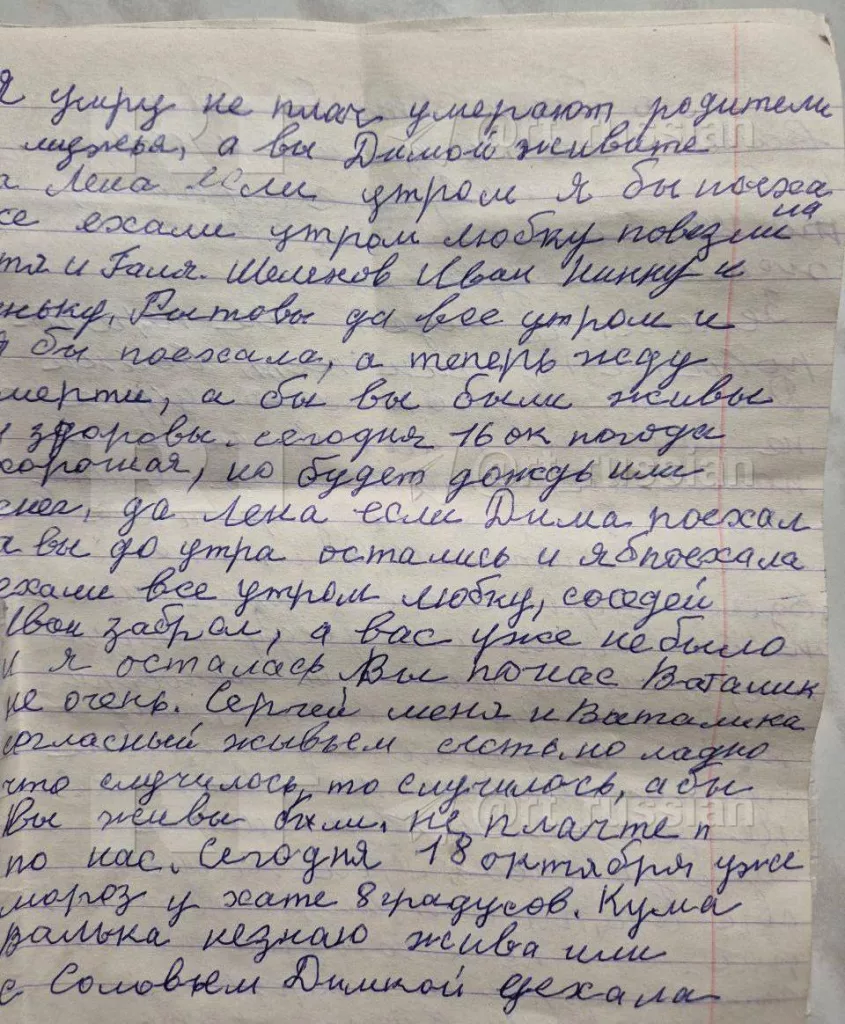 я умру не плач умерают родители
а вы Димой живите
а Лена если утром я бы поеха
ехали утром любку повезли на
тя и Галя. Шеленов Иван Нинку и
ньку, Рытовы да все утром и
я бы поехала, а теперь жду
мерти, а бы вы были живы
и здоровы. сегодня 16 ок погода
хорошая, но будет дождь или
снег, да Лена если Дима поехал
а вы до утра остались и я б поехала
ехали все утром любку, соседей
Иван забрал, а вас уже небыло
и я осталась Вы по нас Ваталик
не очень. Сергей меня и Ваталика
согласный живьем систь, но ладно
что случилось, то случилось, абы
Вы живы были, не плачте п
по нас. Сегодня 18 октября уже
мороз у хате 8 градусов. Кума
валька незнаю жива или
с Соловьем Димкой уехала
RT
@rt_russian
RT
@rt_russian
RT
@rt_russian